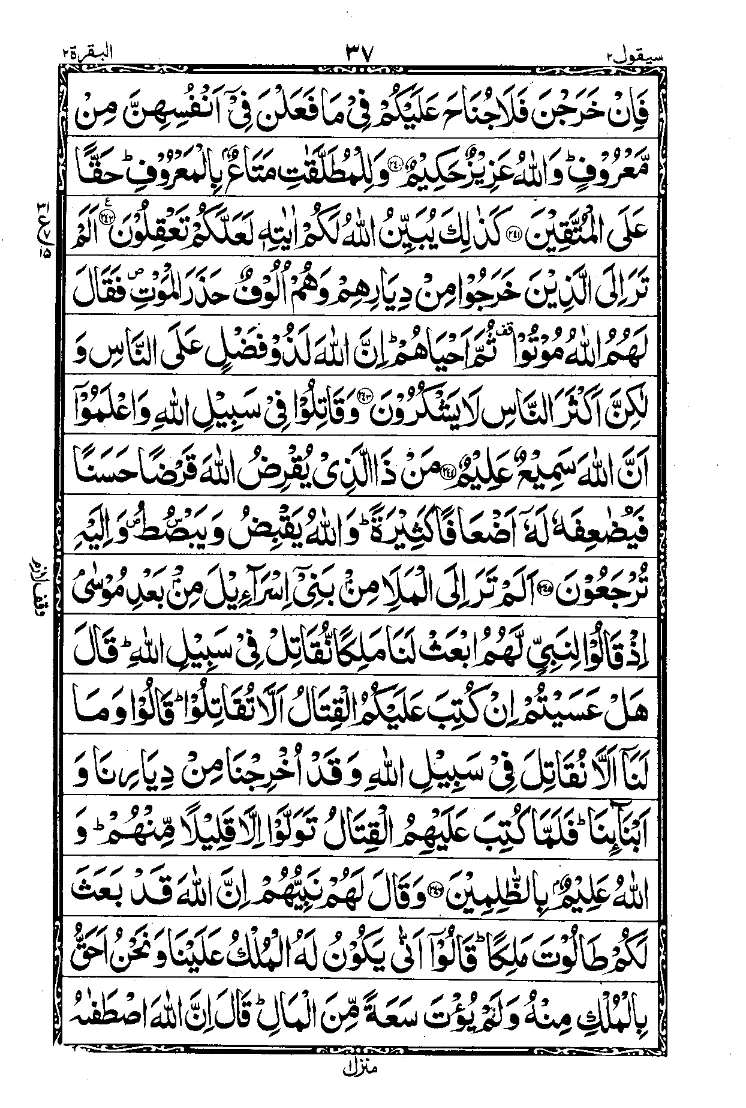 سيقول ٢
٣٧
البقرة ٢
فَاِنْ خَرَجْنَ فَلَا جُنَاحَ عَلَيْكُمْ فِىْ مَا فَعَلْنَ فِىْٓ اَنْفُسِهِنَّ مِنْ
مَّعْرُوْفٍ ؕ وَاللّٰهُ عَزِيْزٌ حَكِيْمٌ ﴿٢٤٠﴾ وَلِلْمُطَلَّقٰتِ مَتَاعٌۢ بِالْمَعْرُوْفِ ؕ حَقًّا
عَلَى الْمُتَّقِيْنَ ﴿٢٤١﴾ كَذٰلِكَ يُبَيِّنُ اللّٰهُ لَكُمْ اٰيٰتِهٖ لَعَلَّكُمْ تَعْقِلُوْنَ ﴿٢٤٢﴾ؑ اَلَمْ
تَرَ اِلَى الَّذِيْنَ خَرَجُوْا مِنْ دِيَارِهِمْ وَهُمْ اُلُوْفٌ حَذَرَ الْمَوْتِ ۪ فَقَالَ
لَهُمُ اللّٰهُ مُوْتُوْا قف ثُمَّ اَحْيَاهُمْ ؕ اِنَّ اللّٰهَ لَذُوْ فَضْلٍ عَلَى النَّاسِ وَ
لٰكِنَّ اَكْثَرَ النَّاسِ لَا يَشْكُرُوْنَ ﴿٢٤٣﴾ وَقَاتِلُوْا فِىْ سَبِيْلِ اللّٰهِ وَاعْلَمُوْٓا
اَنَّ اللّٰهَ سَمِيْعٌ عَلِيْمٌ ﴿٢٤٤﴾ مَنْ ذَا الَّذِىْ يُقْرِضُ اللّٰهَ قَرْضًا حَسَنًا
فَيُضٰعِفَهٗ لَهٗٓ اَضْعَافًا كَثِيْرَةً ؕ وَاللّٰهُ يَقْبِضُ وَيَبْصُۜطُ ۪ وَاِلَيْهِ
تُرْجَعُوْنَ ﴿٢٤٥﴾ اَلَمْ تَرَ اِلَى الْمَلَاِ مِنْۢ بَنِىْٓ اِسْرَآءِيْلَ مِنْۢ بَعْدِ مُوْسٰىۘ
اِذْ قَالُوْا لِنَبِىٍّ لَّهُمُ ابْعَثْ لَنَا مَلِكًا نُّقَاتِلْ فِىْ سَبِيْلِ اللّٰهِ ؕ قَالَ
هَلْ عَسَيْتُمْ اِنْ كُتِبَ عَلَيْكُمُ الْقِتَالُ اَلَّا تُقَاتِلُوْا ؕ قَالُوْا وَمَا
لَنَآ اَلَّا نُقَاتِلَ فِىْ سَبِيْلِ اللّٰهِ وَقَدْ اُخْرِجْنَا مِنْ دِيَارِنَا وَ
اَبْنَآئِنَا ؕ فَلَمَّا كُتِبَ عَلَيْهِمُ الْقِتَالُ تَوَلَّوْا اِلَّا قَلِيْلًا مِّنْهُمْ ؕ وَ
اللّٰهُ عَلِيْمٌۢ بِالظّٰلِمِيْنَ ﴿٢٤٦﴾ وَقَالَ لَهُمْ نَبِيُّهُمْ اِنَّ اللّٰهَ قَدْ بَعَثَ
لَكُمْ طَالُوْتَ مَلِكًا ؕ قَالُوْٓا اَنّٰى يَكُوْنُ لَهُ الْمُلْكُ عَلَيْنَا وَنَحْنُ اَحَقُّ
بِالْمُلْكِ مِنْهُ وَلَمْ يُؤْتَ سَعَةً مِّنَ الْمَالِ ؕ قَالَ اِنَّ اللّٰهَ اصْطَفٰىهُ
وقف لازم
منزل ١